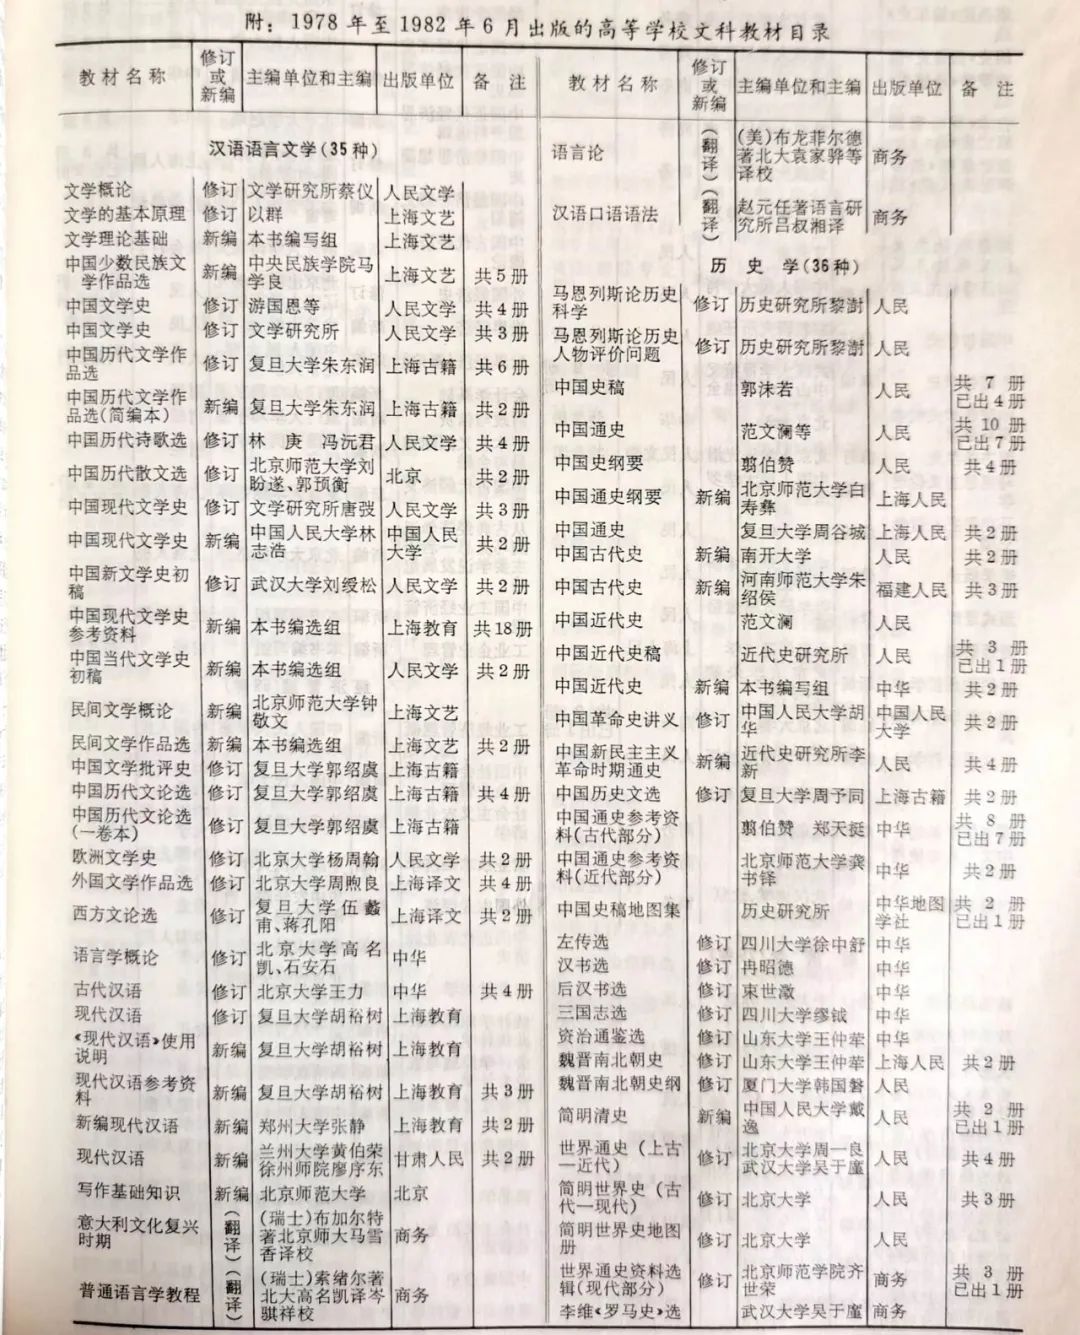 附：1978年至1982年6月出版的高等学校文科教材目录
教材名称 修订或新编 主编单位和主编 出版单位 备注
汉语语言文学(35种)
文学概论 修订 文学研究所蔡仪 人民文学
文学的基本原理 修订 以群 上海文艺
文学理论基础 新编 本书编写组 上海文艺
中国少数民族文学作品选 新编 中央民族学院马学良 上海文艺 共5册
中国文学史 修订 游国恩等 人民文学 共4册
中国文学史 修订 文学研究所 人民文学 共3册
中国历代文学作品选 修订 复旦大学朱东润 上海古籍 共6册
中国历代文学作品选(简编本) 新编 复旦大学朱东润 上海古籍 共2册
中国历代诗歌选 修订 林庚 冯沅君 人民文学 共4册
中国历代散文选 修订 北京师范大学刘盼遂、郭预衡 北京 共2册
中国现代文学史 修订 文学研究所唐弢 人民文学 共3册
中国现代文学史 新编 中国人民大学林志浩 中国人民大学 共2册
中国新文学史初稿 修订 武汉大学刘绶松 人民文学 共2册
中国现代文学史参考资料 新编 本书编选组 上海教育 共18册
中国当代文学史初稿 新编 本书编选组 人民文学 共2册
民间文学概论 新编 北京师范大学钟敬文 上海文艺
民间文学作品选 新编 本书编选组 上海文艺 共2册
中国文学批评史 修订 复旦大学郭绍虞 上海古籍
中国历代文论选 修订 复旦大学郭绍虞 上海古籍 共4册
中国历代文论选(一卷本) 修订 复旦大学郭绍虞 上海古籍
欧洲文学史 修订 北京大学杨周翰 人民文学 共2册
外国文学作品选 修订 北京大学周煦良 上海译文 共4册
西方文论选 修订 复旦大学伍蠡甫、蒋孔阳 上海译文 共2册
语言学概论 修订 北京大学高名凯、石安石 中华
古代汉语 修订 北京大学王力 中华 共4册
现代汉语 修订 复旦大学胡裕树 上海教育
《现代汉语》使用说明 新编 复旦大学胡裕树 上海教育
现代汉语参考资料 新编 复旦大学胡裕树 上海教育 共3册
新编现代汉语 新编 郑州大学张静 上海教育 共2册
现代汉语 新编 兰州大学黄伯荣 徐州师院廖序东 甘肃人民 共2册
写作基础知识 新编 北京师范大学 北京
意大利文化复兴时期 (翻译) (瑞士)布加尔特著北京师大马雪香译校 商务
普通语言学教程 (翻译) (瑞士)索绪尔著北大高名凯译岑骐祥校 商务
教材名称 修订或新编 主编单位和主编 出版单位 备注
语言论 (翻译) (美)布龙菲尔德著北大袁家骅等译校 商务
汉语口语语法 (翻译) 赵元任著语言研究所吕叔湘译 商务
历史学(36种)
马恩列斯论历史科学 修订 历史研究所黎澍 人民
马恩列斯论历史人物评价问题 修订 历史研究所黎澍 人民
中国史稿 郭沫若 人民 共7册 已出4册
中国通史 范文澜等 人民 共10册 已出7册
中国史纲要 翦伯赞 人民 共4册
中国通史纲要 新编 北京师范大学白寿彝 上海人民
中国通史 复旦大学周谷城 上海人民 共2册
中国古代史 新编 南开大学 人民 共2册
中国古代史 新编 河南师范大学朱绍侯 福建人民 共3册
中国近代史 范文澜 人民
中国近代史稿 近代史研究所 人民 共3册 已出1册
中国近代史 新编 本书编写组 中华 共2册
中国革命史讲义 修订 中国人民大学胡华 中国人民大学 共2册
中国新民主主义革命时期通史 新编 近代史研究所李新 人民 共4册
中国历史文选 修订 复旦大学周予同 上海古籍 共2册
中国通史参考资料(古代部分) 翦伯赞 郑天挺 中华 共8册 已出7册
中国通史参考资料(近代部分) 北京师范大学龚书铎 中华 共2册
中国史稿地图集 历史研究所 中华地图学社 共2册 已出1册
左传选 修订 四川大学徐中舒 中华
汉书选 修订 冉昭德 中华
后汉书选 修订 束世澂 中华
三国志选 修订 四川大学缪钺 中华
资治通鉴选 修订 山东大学王仲荦 中华
魏晋南北朝史 修订 山东大学王仲荦 上海人民 共2册
魏晋南北朝史纲 修订 厦门大学韩国磐 人民
简明清史 新编 中国人民大学戴逸 人民 共2册 已出1册
世界通史(上古一近代) 修订 北京大学周一良 武汉大学吴于廑 人民 共4册
简明世界史(古代一现代) 修订 北京大学 人民 共3册
简明世界史地图册 修订 北京大学 人民
世界通史资料选辑(现代部分) 修订 北京师范学院齐世荣 商务 共3册 已出1册
李维《罗马史》选 武汉大学吴于廑 商务